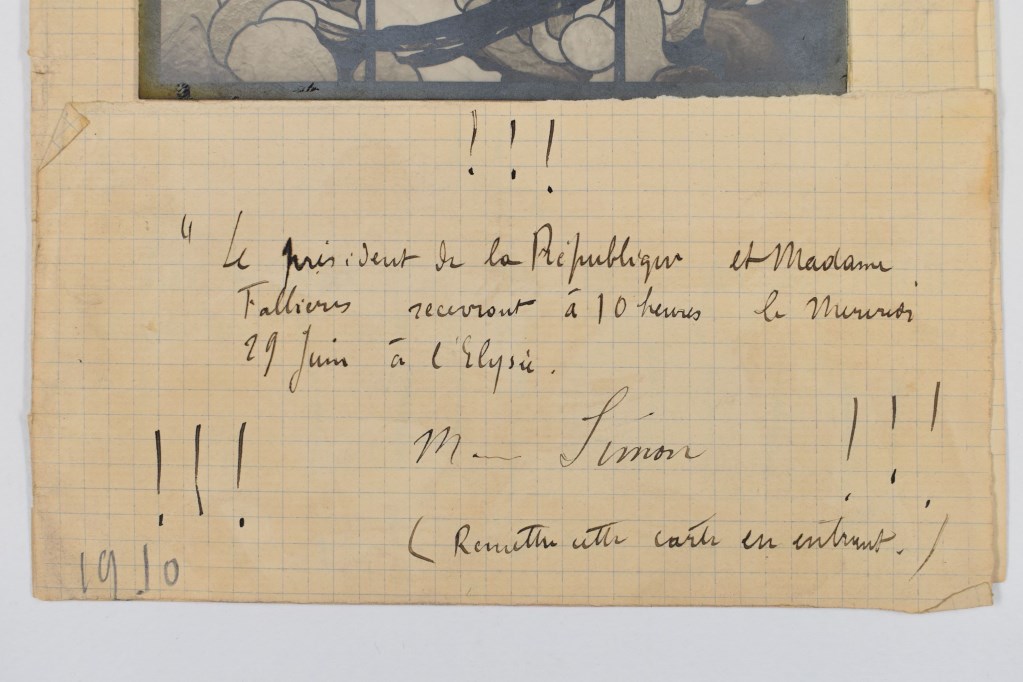 ! ! !
" Le président de la République et Madame
Fallieres recevront à 10 heures le Mercredi
29 Juin à l'Elysée.
! ! !
M Simon
! ! !
( Remettre cette carte en entrant. )
1910